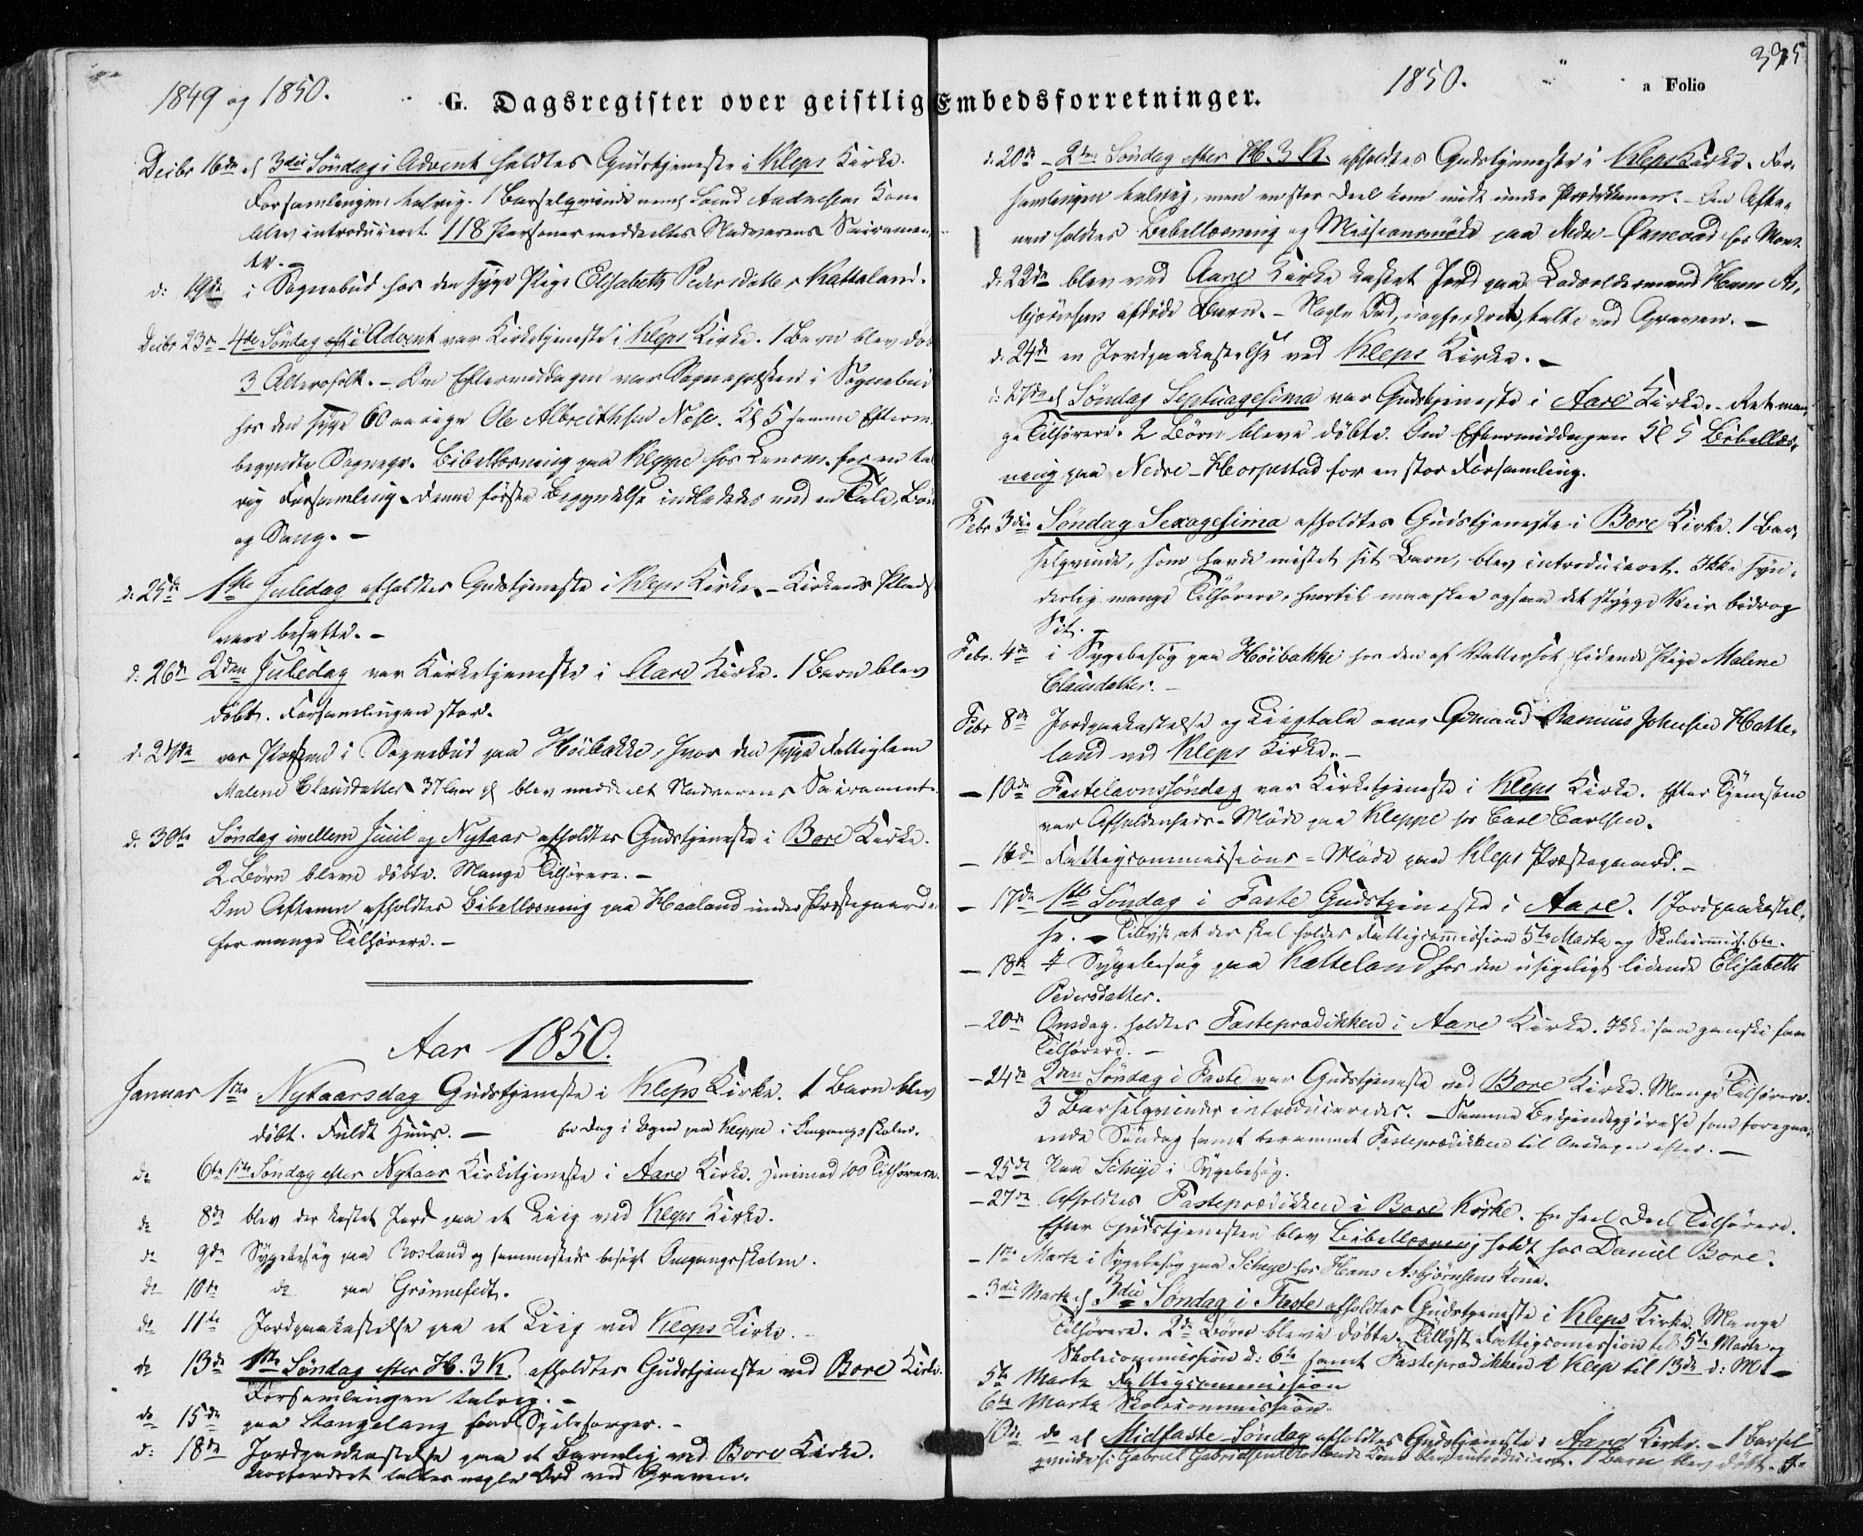 1849 og 1850.
G. Dagsregister over geistlig Embedsforretninger.
Decbr 16de 3die Søndag i Advent holdtes Gudstjeneste i Kleps Kirke.
Forsamlingen talrig. 1 Barselqvinde Kone
blev introduceret. 118 Personer meddeeltes Nadverens Sacramen
te.
d: 19de i Sognebud hos den syge Pige Elisabeth Pedersdatter Kattaland.
Decbr 23de 4de Søndag i Advent var Kirketjeneste i Kleps Kirke. 1 Barn blev døb
3 Altersfolk. – Om Eftermiddagen var Sognepræsten i Sognebud
hos den syge 60 aarige Ole Albrethsen Næse. Kl 5 samme Efterm.
begyndte Sognepr. Bibellæsning paa Kleppe hos for en tal
rig Forsamling. Denne første Begyndelse indlededes med en Tale, Bøn
og Sang. –
d: 25de 1ste Juledag afholdtes Gudstjeneste i Kleps Kirke. – Kirkens Pladse
vare besatte. –
d: 26de 2den Juledag var Kirketjeneste i Aare Kirke. 1 Barn blev
døbt. Forsamlingen stor.
d: var Præsten i Sognebud paa Høibakke, hvor den syge Fattiglem
Malene Clausdatter 37 Aar blev meddeelt Nadverens Sacramente.
d: 30te Søndag imellem Juul og Nytaar afholdtes Gudstjeneste i Bore Kirke.
2 Børn bleve døbte. Mange Tilhørere. –
Om Aftenen afholdtes Bibellæsning paa Haaland under Præstegaard
for mange Tilhørere. –
Aar 1850.
Januar 1ste Nytaarsdag Gudstjeneste i Kleps Kirke. 1 Barn blev
døbt. Fuldt Huus. – En Dag i Ugen paa Kleppe i Omgangsskolen.
do 6te 1ste Søndag efter Nytaar Kirketjeneste i Aare Kirke. henimod 100 Tilhørere.
do 8de blev der kastet Jord paa et Liig ved Kleps Kirke.
do 9de Sygebesøg paa Rosland og sammesteds besøgt Omgangsskolen.
do 10de do paa Grønnefedt.
do 11te Jordpaakastelse paa et Liig ved Kleps Kirke.
do 13de 1ste Søndag efter H. 3 K. afholdtes Gudstjeneste ved Bore Kirke.
Forsamlingen talrig. –
do 15de paa Stangeland
d: 18de Jordpaakastelse paa et Barnelig ved Bore Kirke.
Uopfordret taltes nogle Ord ved Graven.
1850.
a Folio
375
d: 20de – 2den Søndag efter H. 3 K. afholdtes Gudstjeneste i Kleps Kirke. For
samlingen talrig, men en stor Deel kom midt under Prædikkenen. – Om Afte
nen holdtes Bibellæsning og Missionsmøde paa Nedre-Øxnevad hos Mons
d: 22de blev ved Aare Kirke kastet Jord paa Hans As
bjørnsens afdøde Barn. – Nogle Ord, uopfordret, talte ved Graven. –
d: 24de en Jordpaakastelse ved Kleps Kirke. –
d: 27de Søndag Septuagesima var Gudstjeneste i Aare Kirke. – Ret man
ge Tilhørere. 2 Børn bleve døbte. Om Eftermiddagen Kl 5 Bibellæs
ning paa Nedre-Horpestad for en stor Forsamling.
Febr 3die Søndag Sexagesima afholdtes Gudstjeneste i Bore Kirke. 1 Bar
selqvinde, som havde mistet sit Barn, blev introduceret. Ikke syn
derlig mange Tilhørere, hvortil maaskee ogsaa det stygge Veir bidrog
Sit.
Febr. 4de i Sygebesøg paa Høibakke hos den af Vattersot lidende Pige Malene
Clausdatter. –
Febr 8de Jordpaakastelse og Liigtale over Gmand Rasmus Johnsen Hatte
land ved Kleps Kirke. –
– 10de Fastelavnssøndag var Kirketjeneste i Kleps Kirke. Efter Tjenesten
var Afholdenheds-Møde paa Kleppe hos Carl Carlsen.
– Fattigcommissions-Møde paa Kleps Præstegaard. –
– 17de 1ste Søndag i Faste Gudstjeneste i Aare. 1 Jordpaakastel
se. – Tillyst, at der skal holdes Fattigcommission 5te Marts og Skolecommiss. 6te.
– 18de Sygebesøg paa Katteland hos den usigeligt lidende Elisabeth
Pedersdatter.
– 20de Onsdag holdtes Fasteprædikken i Aare Kirke. Ikke saa ganske faa
Tilhørere. –
– 24de 2den Søndag i Faste var Gudstjeneste ved Bore Kirke. Mange Tilhørere.
3 Barselqvinder introduceredes. – Samme Bekjendtgjørelse som foregaa
ende Søndag samt berammet Fasteprædikken til Onsdagen efter. –
– 25de Paa Scheje i Sygebesøg.
– 27de Afholdtes Fasteprædikken i Bore Kirke. En heel Deel Tilhørere.
Efter Gudstjenesten blev Bibellæsning holdt hos Daniel Bore.
– 1ste Marts i Sygebesøg paa Scheje hos Hans Asbjørnsens Kone.
– 3die Marts 3die Søndag i Faste afholdtes Gudstjeneste i Kleps Kirke. Mange
Tilhørere. 2de Børn bleve døbte. Tillyst Fattigcommission til 5te Marts og
Skolecommission d: 6te samt Fasteprædikken i Klep til 13de d: M: –
5te Marts Fattigcommission
6te Marts Skolecommission.
10de do Midfaste-Søndag afholdtes Gudstjeneste i Aare Kirke. – 1 Barsel
qvinde Gabriel Gabrielsen Kone blev introduceret. 1 Barn blev døbt.